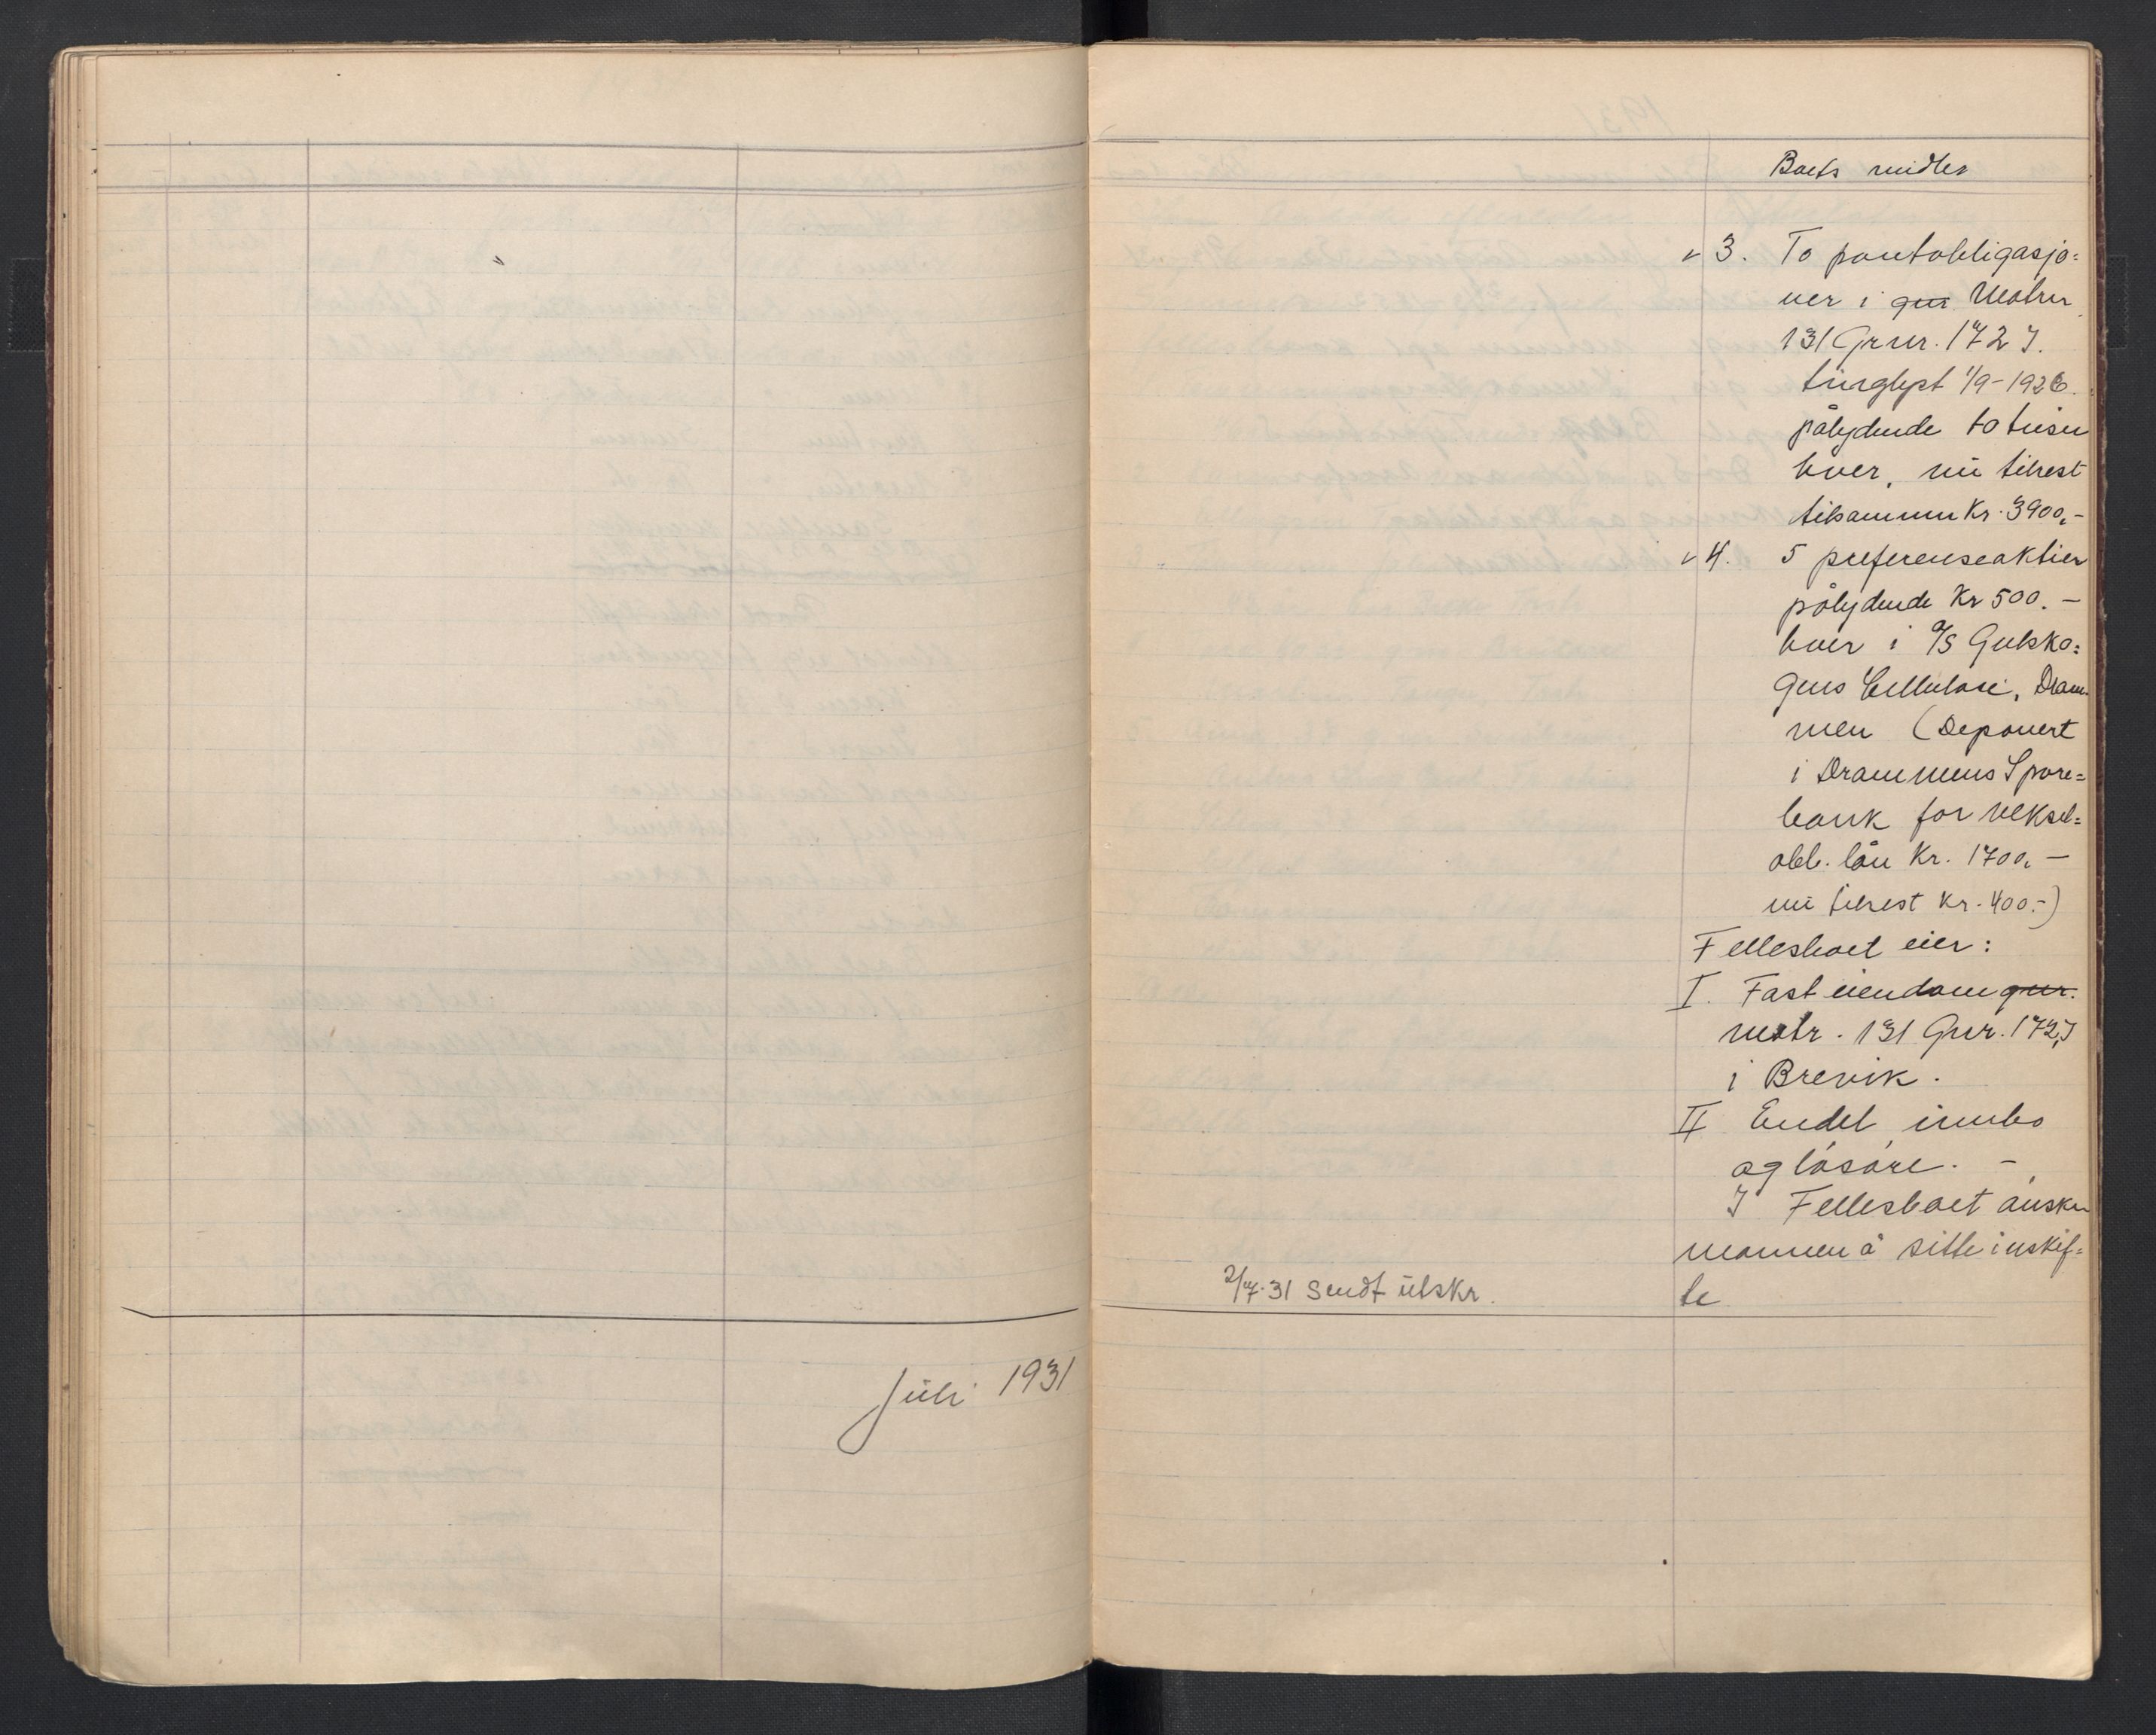 Juli 1931
Boets midler
v 3. To pantobligasjo=
ner i gnr Matrnr
131 Grnr. 172 I.
tinglyst 1/9-1926.
pålydende totusen
hver, nu tilrest
tilsammen Kr. 3900,-
v 4. 5 preferenseaktier
pålydende Kr 500.-
hver i A/S Gulsko=
gens Cellulose, Dram=
men (Deponert
i Drammens Spare=
bank for veksel=
obl. lån Kr. 1700,-
nu tilrest Kr. 400.-)
Fellesboet eier:
I. Fast eiendom gnr.
matr. 131 Grnr. 172 I
i Brevik.
II Endel innbo
og løsøre. -
I Fellesboet ønsker
mannen å sitte i uskif=
te
2/7-31 Sendt utskr.